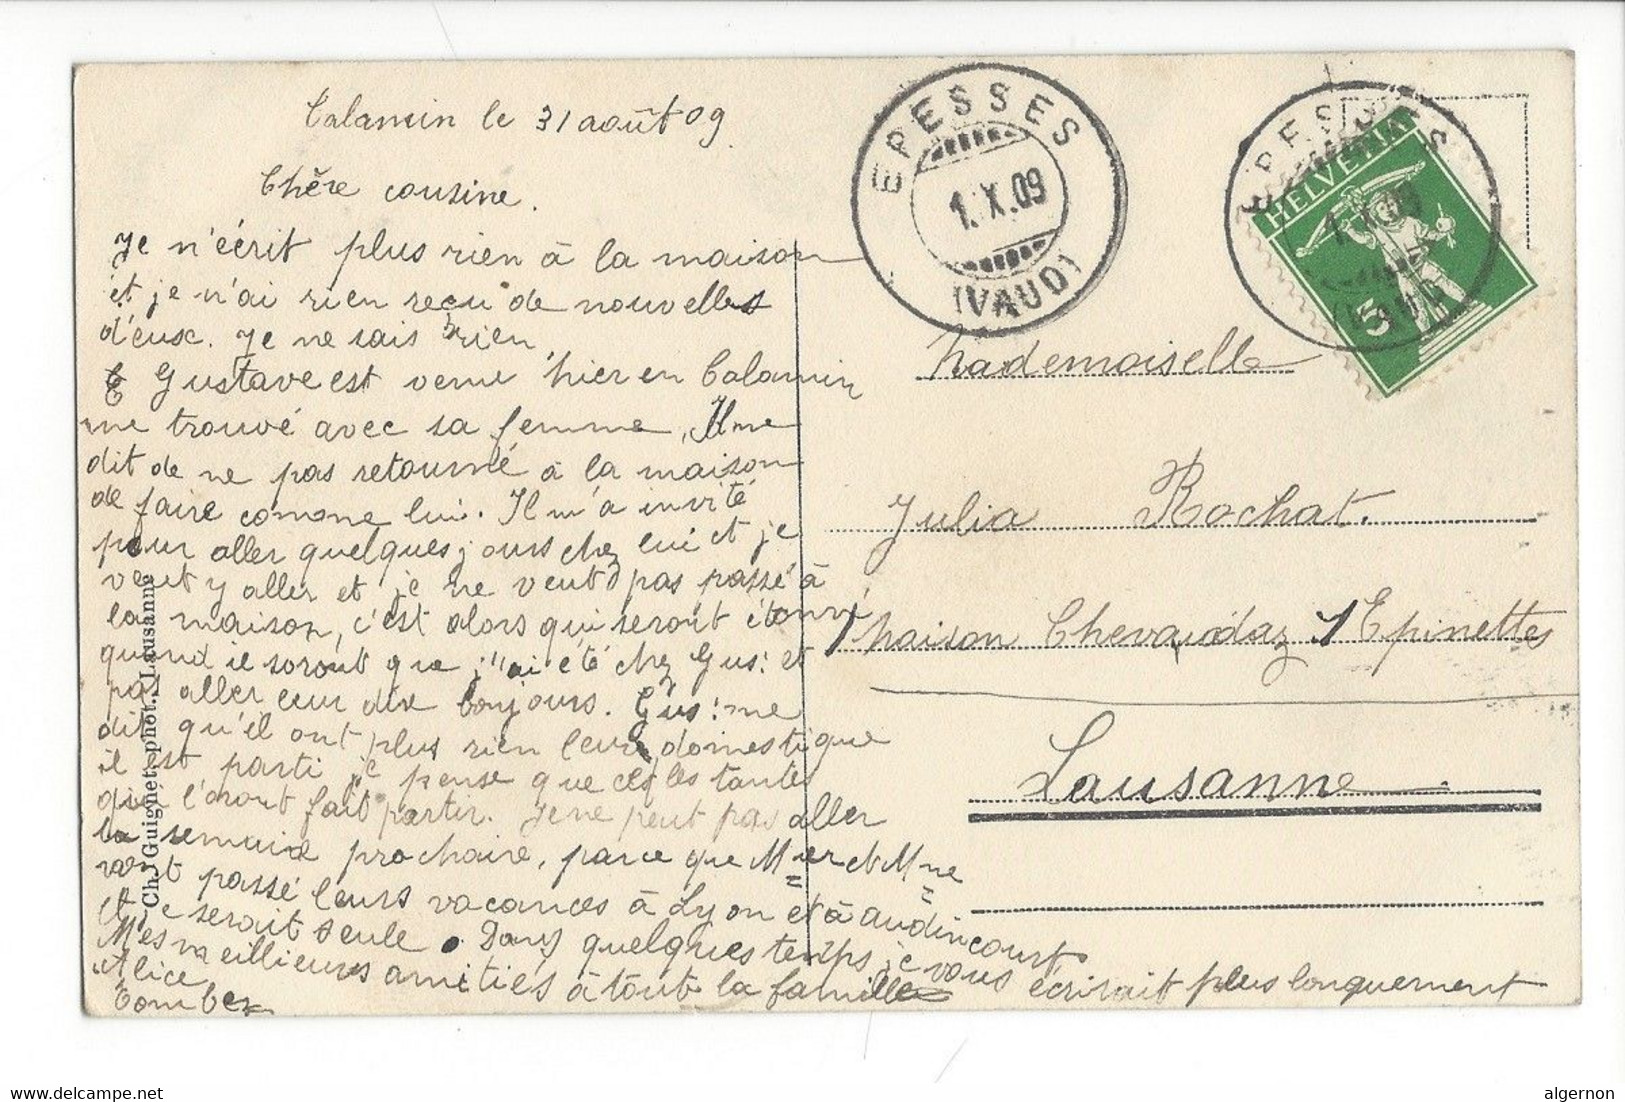 Calamin le 31 août 09
Chère cousine.
Je n'écrit plus rien à la maison
et je n'ai rien reçu de nouvelles
d'eux. Je ne sais rien,
Gustave est venu hier en Calamin
me trouvé avec sa femme, Il me
dit de ne pas retourné à la maison
de faire comme lui. Il m'a invité
pour aller quelques jours chez lui et je
veut y aller et je ne veut pas passé à
la maison, c'est alors qui seront étonné
quand il soront que j'ai été chez Gus: et
pas aller leur dire bonjours. Gus: me
dit qu'il ont plus rien leur domestique
il est parti je pense que les tantes
qui l'oront fait partir. Je ne peut pas aller
la semaine prochaine, parce que Mier et Mne
vont passé leurs vacances à Lyon et à audincourt
et je serait seule. Dans quelques temps je vous écrirait plus longuement
Mes meillieurs amitiés à tout la famille
Alice
Combez
Ch. Guignet, phot., Lausanne
EPESSES
1.X.09
(VAUD)
EPESSES
1.X.09
(VAUD)
HELVETIA
5
Mademoiselle
Julia Rochat.
Maison Chevaudaz 1 Epinettes
Lausanne
delcampe.net
algernon